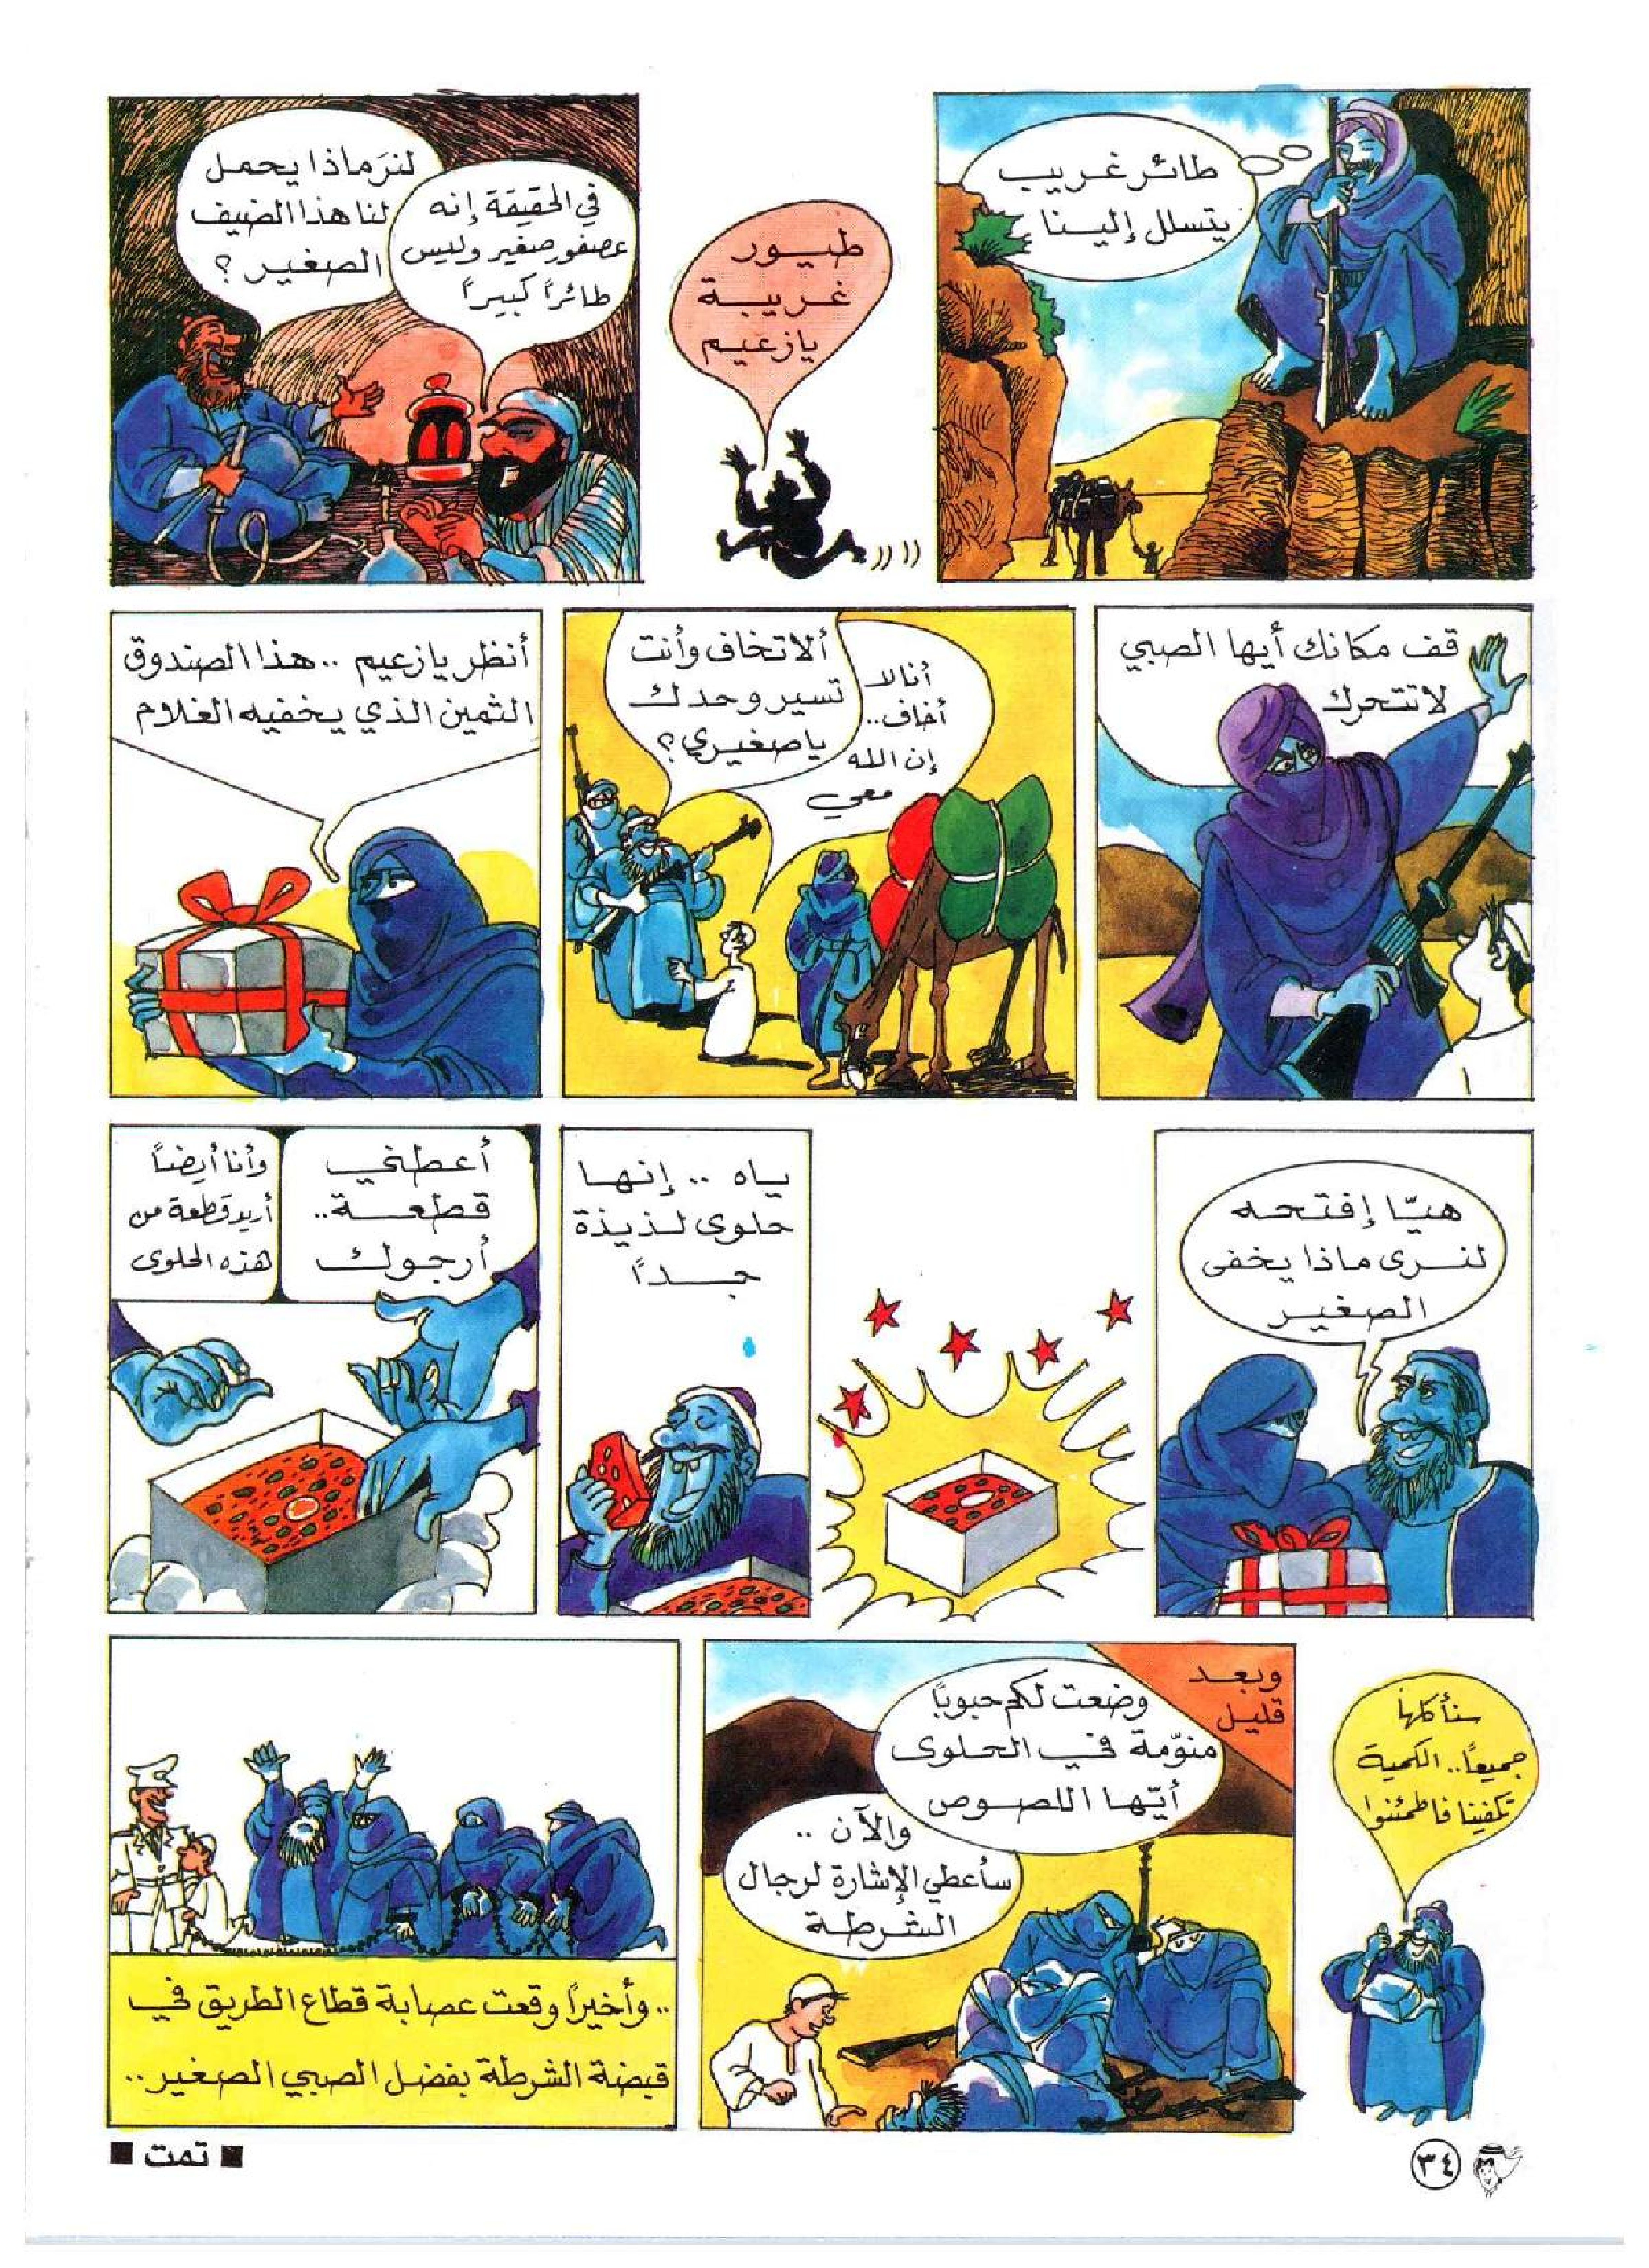 طائر غريب
يتسلل إلينا
طيور
غريبة
يا زعيم
في الحقيقة إنه
عصفور صغير وليس
طائراً كبيراً
لنرَ ماذا يحمل
لنا هذا الضيف
الصغير؟
قف مكانك أيها الصبي
لا تتحرك
ألا تخاف وأنت
تسير وحدك
يا صغيري؟
أنا لا
أخاف..
إن الله
معي
أنظر يا زعيم .. هذا الصندوق
الثمين الذي يخفيه الغلام
هيّا إفتحه
لنرى ماذا يخفى
الصغير
ياه .. إنها
حلوى لذيذة
جداً
أعطني
قطعة..
أرجوك
وأنا أيضاً
أريد قطعة من
هذه الحلوى
سنأكلها
جميعاً.. الكمية
تكفينا فاطمئنوا
وبعد
قليل
وضعت لكم حبوباً
منوّمة في الحلوى
أيّها اللصوص
والآن ..
سأعطي الإشارة لرجال
الشرطة
.. وأخيراً وقعت عصابة قطاع الطريق في
قبضة الشرطة بفضل الصبي الصغير ..
■ تمت ■
٣٤